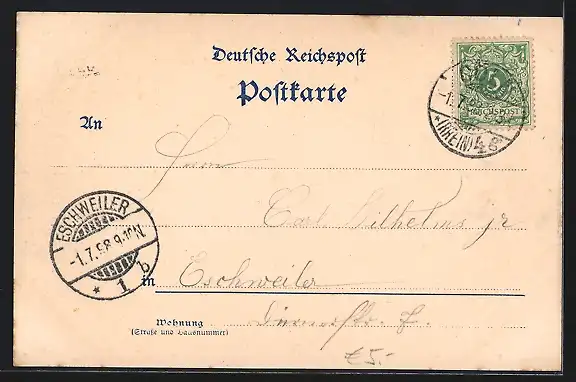 Deutsche Reichspost
Postkarte
5
REICHSPOST
-1.7.98
(RHEIN)
An
Herrn
Carl Wilhelms jr
ESCHWEILER
-1.7.98 9-10N
* 1 b
in Eschweiler
Wohnung
(Straße und Hausnummer)
€5.-